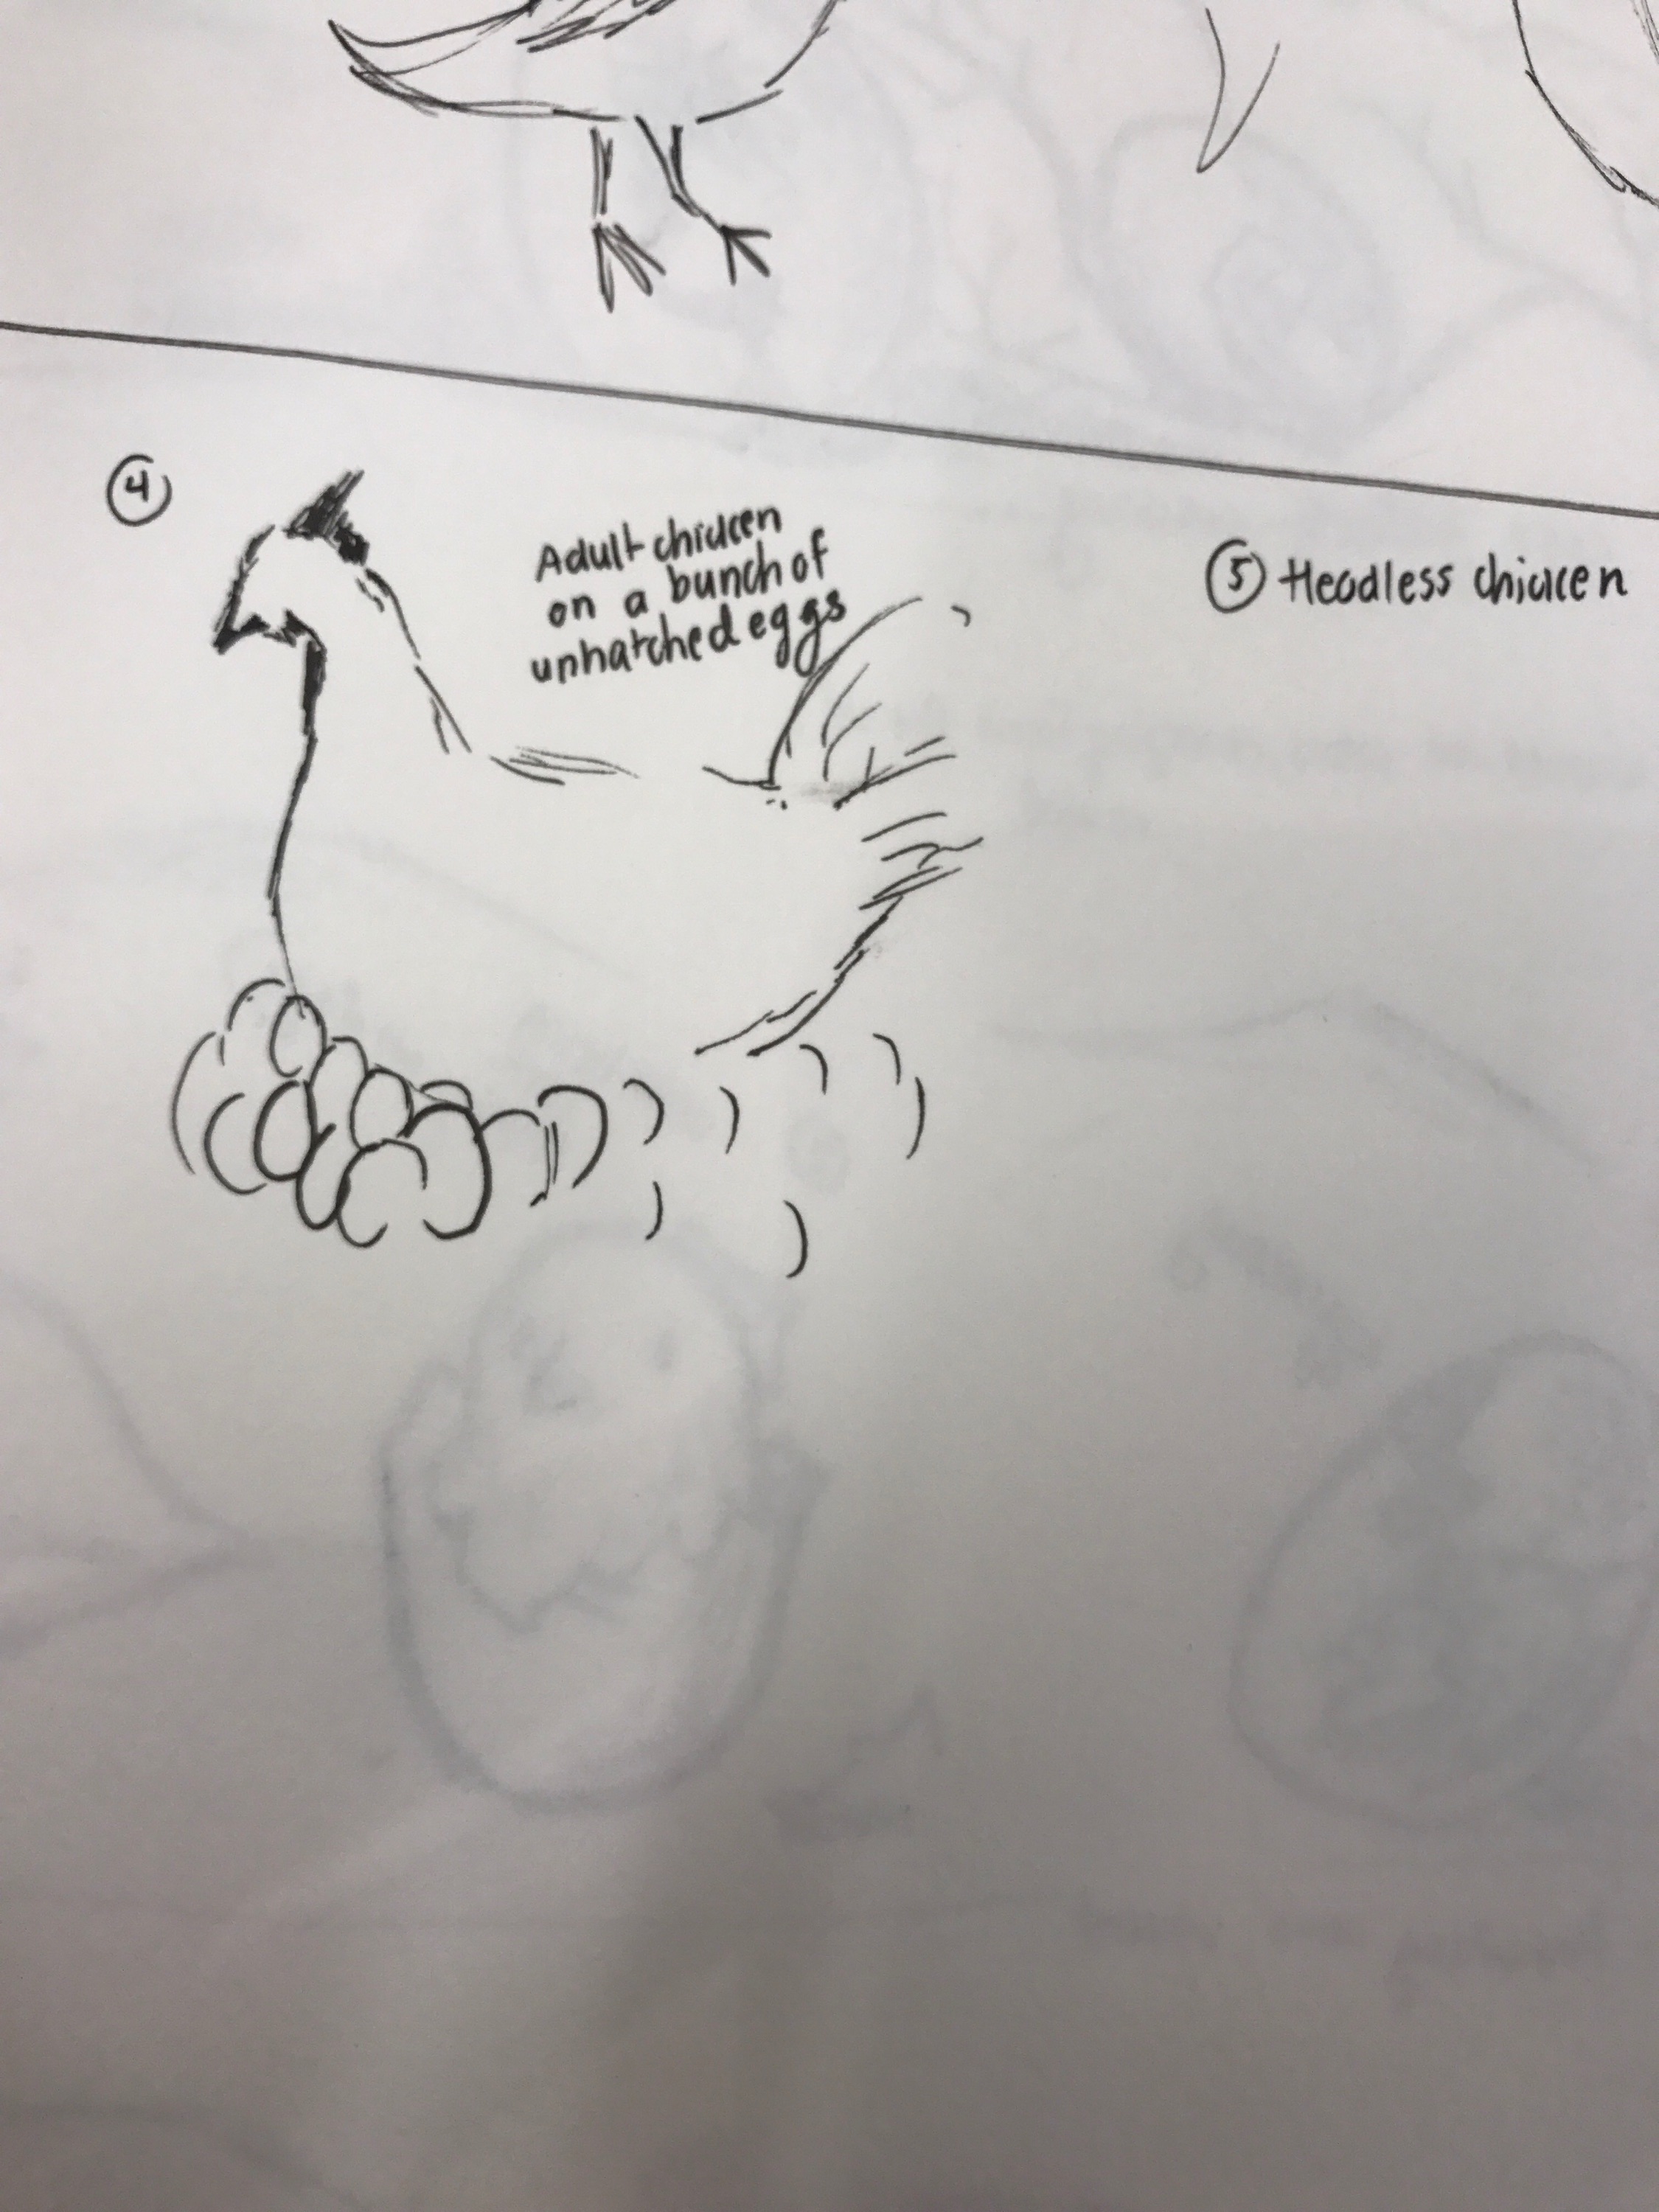 4
Adult chicken
on a bunch of
unhatched eggs
5 Headless chicken